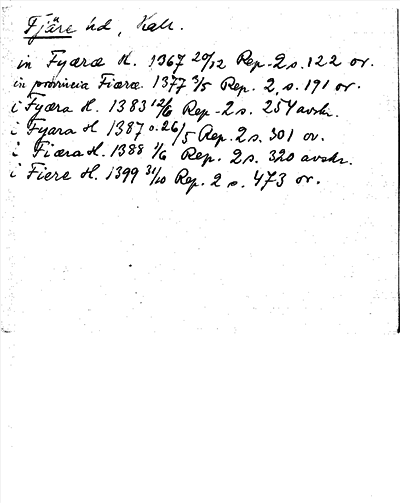 Fjäre hd, Hall.
in Fyæræ H. 1367 20/12 Rep. 2 s. 122 or.
in provincia Fiæræ 1377 3/5 Rep. 2, s. 191 or.
i Fyæra H. 1383 12/6 Rep. 2 s. 254 avskr.
i Fyara H 1387 o. 26/5 Rep. 2 s. 301 or.
i Fiæra H. 1388 1/6 Rep. 2 s. 320 avskr.
i Fiere H. 1399 31/10 Rep. 2 s. 473 or.